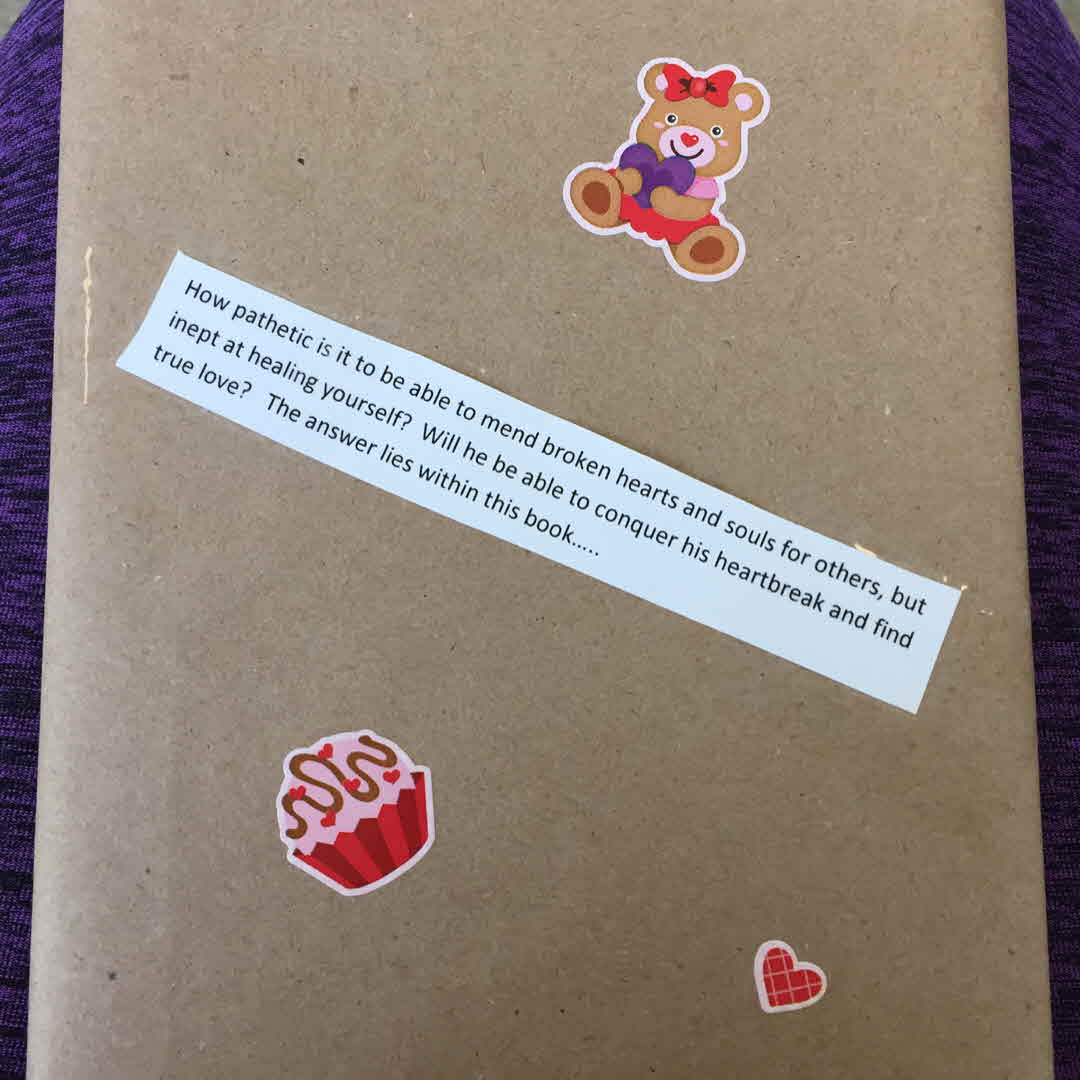 How pathetic is it to be able to mend broken hearts and souls for others, but
inept at healing yourself?  Will he be able to conquer his heartbreak and find
true love?   The answer lies within this book.....